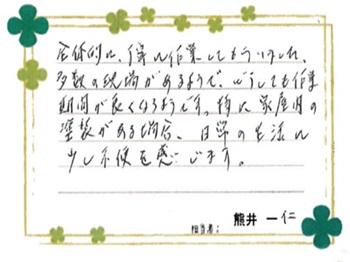 全体的に、丁寧に作業してもらいました。
多数の現場があるようで、どうしても作業
期間が長くなるようです。特に家屋内の
塗装がある場合、日常の生活に
少し不便を感じます。
担当者: 熊井 一仁